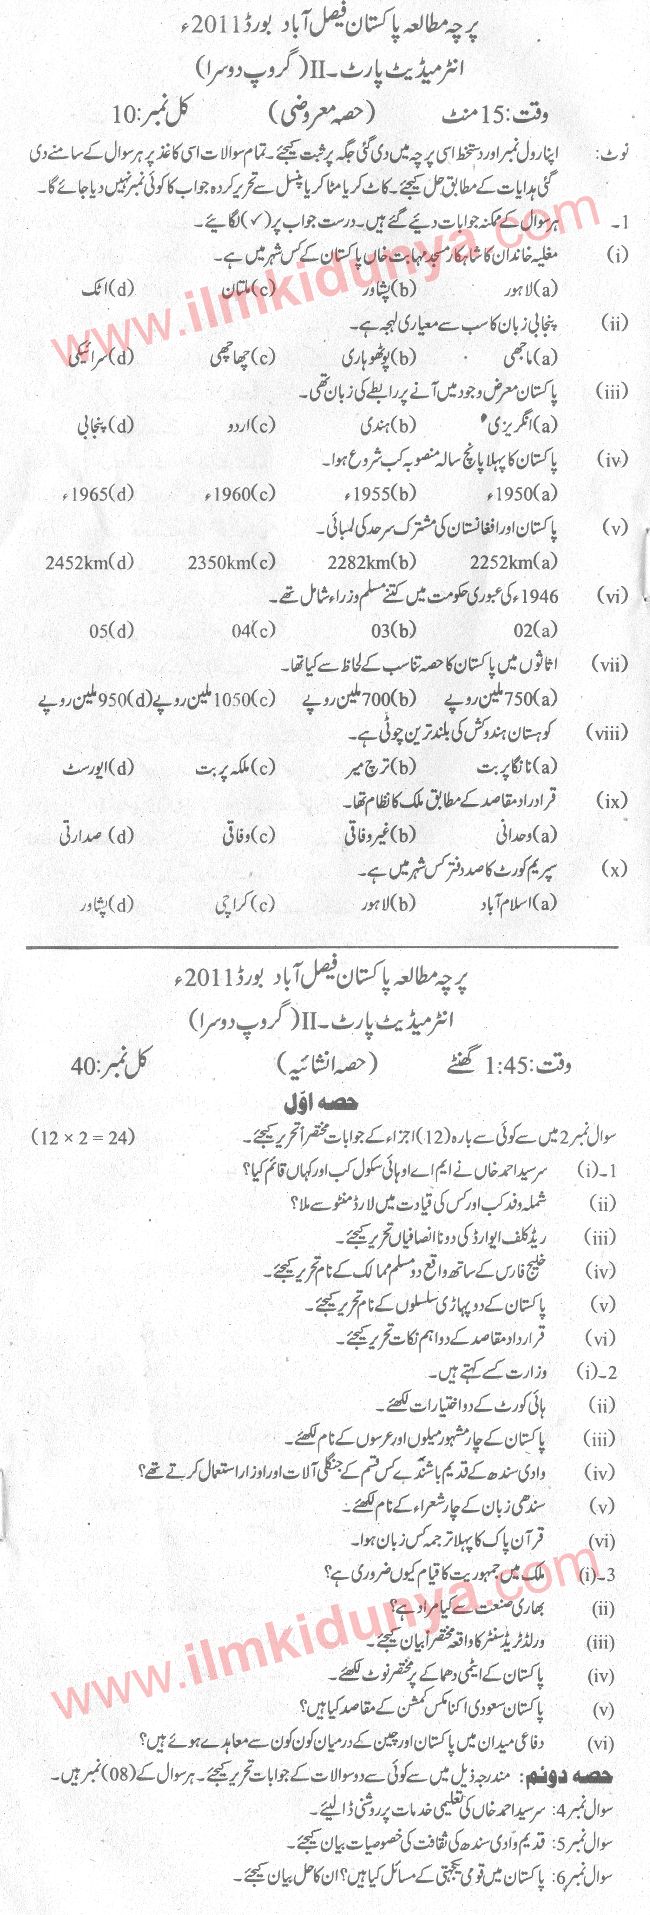 پرچہ مطالعہ پاکستان فیصل آباد بورڈ 2011ء
انٹرمیڈیٹ پارٹ۔II (گروپ دوسرا)
وقت: 15 منٹ (حصہ معروضی) کل نمبر: 10
نوٹ: اپنا رول نمبر اور دستخط اسی پرچہ میں دی گئی جگہ پر ثبت کیجئے۔ تمام سوالات اسی کاغذ پر ہر سوال کے سامنے دی
گئی ہدایات کے مطابق حل کیجئے۔ کاٹ کر یا مٹا کر یا پنسل سے تحریر کردہ جواب کا کوئی نمبر نہیں دیا جائے گا۔
1۔ ہر سوال کے ممکنہ جوابات دیئے گئے ہیں۔ درست جواب پر (✓) لگائیے۔
(i) مغلیہ خاندان کا شاہکار مسجد مہابت خاں پاکستان کے کس شہر میں ہے۔
(a) لاہور (b) پشاور (c) ملتان (d) اٹک
www.ilmkidunya.com
(ii) پنجابی زبان کا سب سے معیاری لہجہ ہے۔
(a) ماجھی (b) پوٹھوہاری (c) چھاچھی (d) سرائیکی
(iii) پاکستان معرض وجود میں آنے پر رابطے کی زبان تھی۔
(a) انگریزی (b) ہندی (c) اردو (d) پنجابی
(iv) پاکستان کا پہلا پانچ سالہ منصوبہ کب شروع ہوا۔
(a) 1950ء (b) 1955ء (c) 1960ء (d) 1965ء
(v) پاکستان اور افغانستان کی مشترک سرحد کی لمبائی۔
(a) 2252km (b) 2282km (c) 2350km (d) 2452km
(vi) 1946ء کی عبوری حکومت میں کتنے مسلم وزراء شامل تھے۔
(a) 02 (b) 03 (c) 04 (d) 05
(vii) اثاثوں میں پاکستان کا حصہ تناسب کے لحاظ سے کیا تھا۔
(a) 750 ملین روپے (b) 700 ملین روپے (c) 1050 ملین روپے (d) 950 ملین روپے
(viii) کوہستان ہندوکش کی بلند ترین چوٹی ہے۔
(a) نانگا پربت (b) ترچ میر (c) ملکہ پربت (d) ایورسٹ
(ix) قرارداد مقاصد کے مطابق ملک کا نظام تھا۔
(a) وحدانی (b) غیر وفاقی (c) وفاقی (d) صدارتی
(x) سپریم کورٹ کا صدر دفتر کس شہر میں ہے۔
(a) اسلام آباد (b) لاہور (c) کراچی (d) پشاور
پرچہ مطالعہ پاکستان فیصل آباد بورڈ 2011ء
انٹرمیڈیٹ پارٹ۔II (گروپ دوسرا)
وقت: 1:45 گھنٹے (حصہ انشائیہ) کل نمبر: 40
حصہ اوّل
سوال نمبر 2 میں سے کوئی سے بارہ (12) اجزاء کے جوابات مختصراً تحریر کیجئے۔ (12 × 2 = 24)
1۔(i) سرسید احمد خاں نے ایم اے او ہائی سکول کب اور کہاں قائم کیا؟
(ii) شملہ وفد کب اور کس کی قیادت میں لارڈ منٹو سے ملا؟
(iii) ریڈ کلف ایوارڈ کی دو نا انصافیاں تحریر کیجئے۔
(iv) خلیج فارس کے ساتھ واقع دو مسلم ممالک کے نام تحریر کیجئے۔
(v) پاکستان کے دو پہاڑی سلسلوں کے نام تحریر کیجئے۔
(vi) قرارداد مقاصد کے دو اہم نکات تحریر کیجئے۔
2۔(i) وزارت کسے کہتے ہیں۔
(ii) ہائی کورٹ کے دو اختیارات لکھئے۔
(iii) پاکستان کے چار مشہور میلوں اور عرسوں کے نام لکھئے۔
(iv) وادی سندھ کے قدیم باشندے کس قسم کے جنگلی آلات اور اوزار استعمال کرتے تھے؟
(v) سندھی زبان کے چار شعراء کے نام لکھئے۔
(vi) قرآن پاک کا پہلا ترجمہ کس زبان ہوا۔
3۔(i) ملک میں جمہوریت کا قیام کیوں ضروری ہے؟
(ii) بھاری صنعت سے کیا مراد ہے؟
(iii) ورلڈ ٹریڈ سنٹر کا واقعہ مختصراً بیان کیجئے۔
www.ilmkidunya.com
(iv) پاکستان کے ایٹمی دھماکے پر مختصر نوٹ لکھئے۔
(v) پاکستان سعودی اکنامکس کمشن کے مقاصد کیا ہیں؟
(vi) دفاعی میدان میں پاکستان اور چین کے درمیان کون کون سے معاہدے ہوئے ہیں؟
حصہ دوئم: مندرجہ ذیل میں سے کوئی سے دو سوالات کے جوابات تحریر کیجئے۔ ہر سوال کے (08) نمبر ہیں۔
سوال نمبر 4: سرسید احمد خاں کی تعلیمی خدمات پر روشنی ڈالیئے۔
سوال نمبر 5: قدیم وادی سندھ کی ثقافت کی خصوصیات بیان کیجئے۔
سوال نمبر 6: پاکستان میں قومی یکجہتی کے مسائل کیا ہیں؟ ان کا حل بیان کیجئے۔